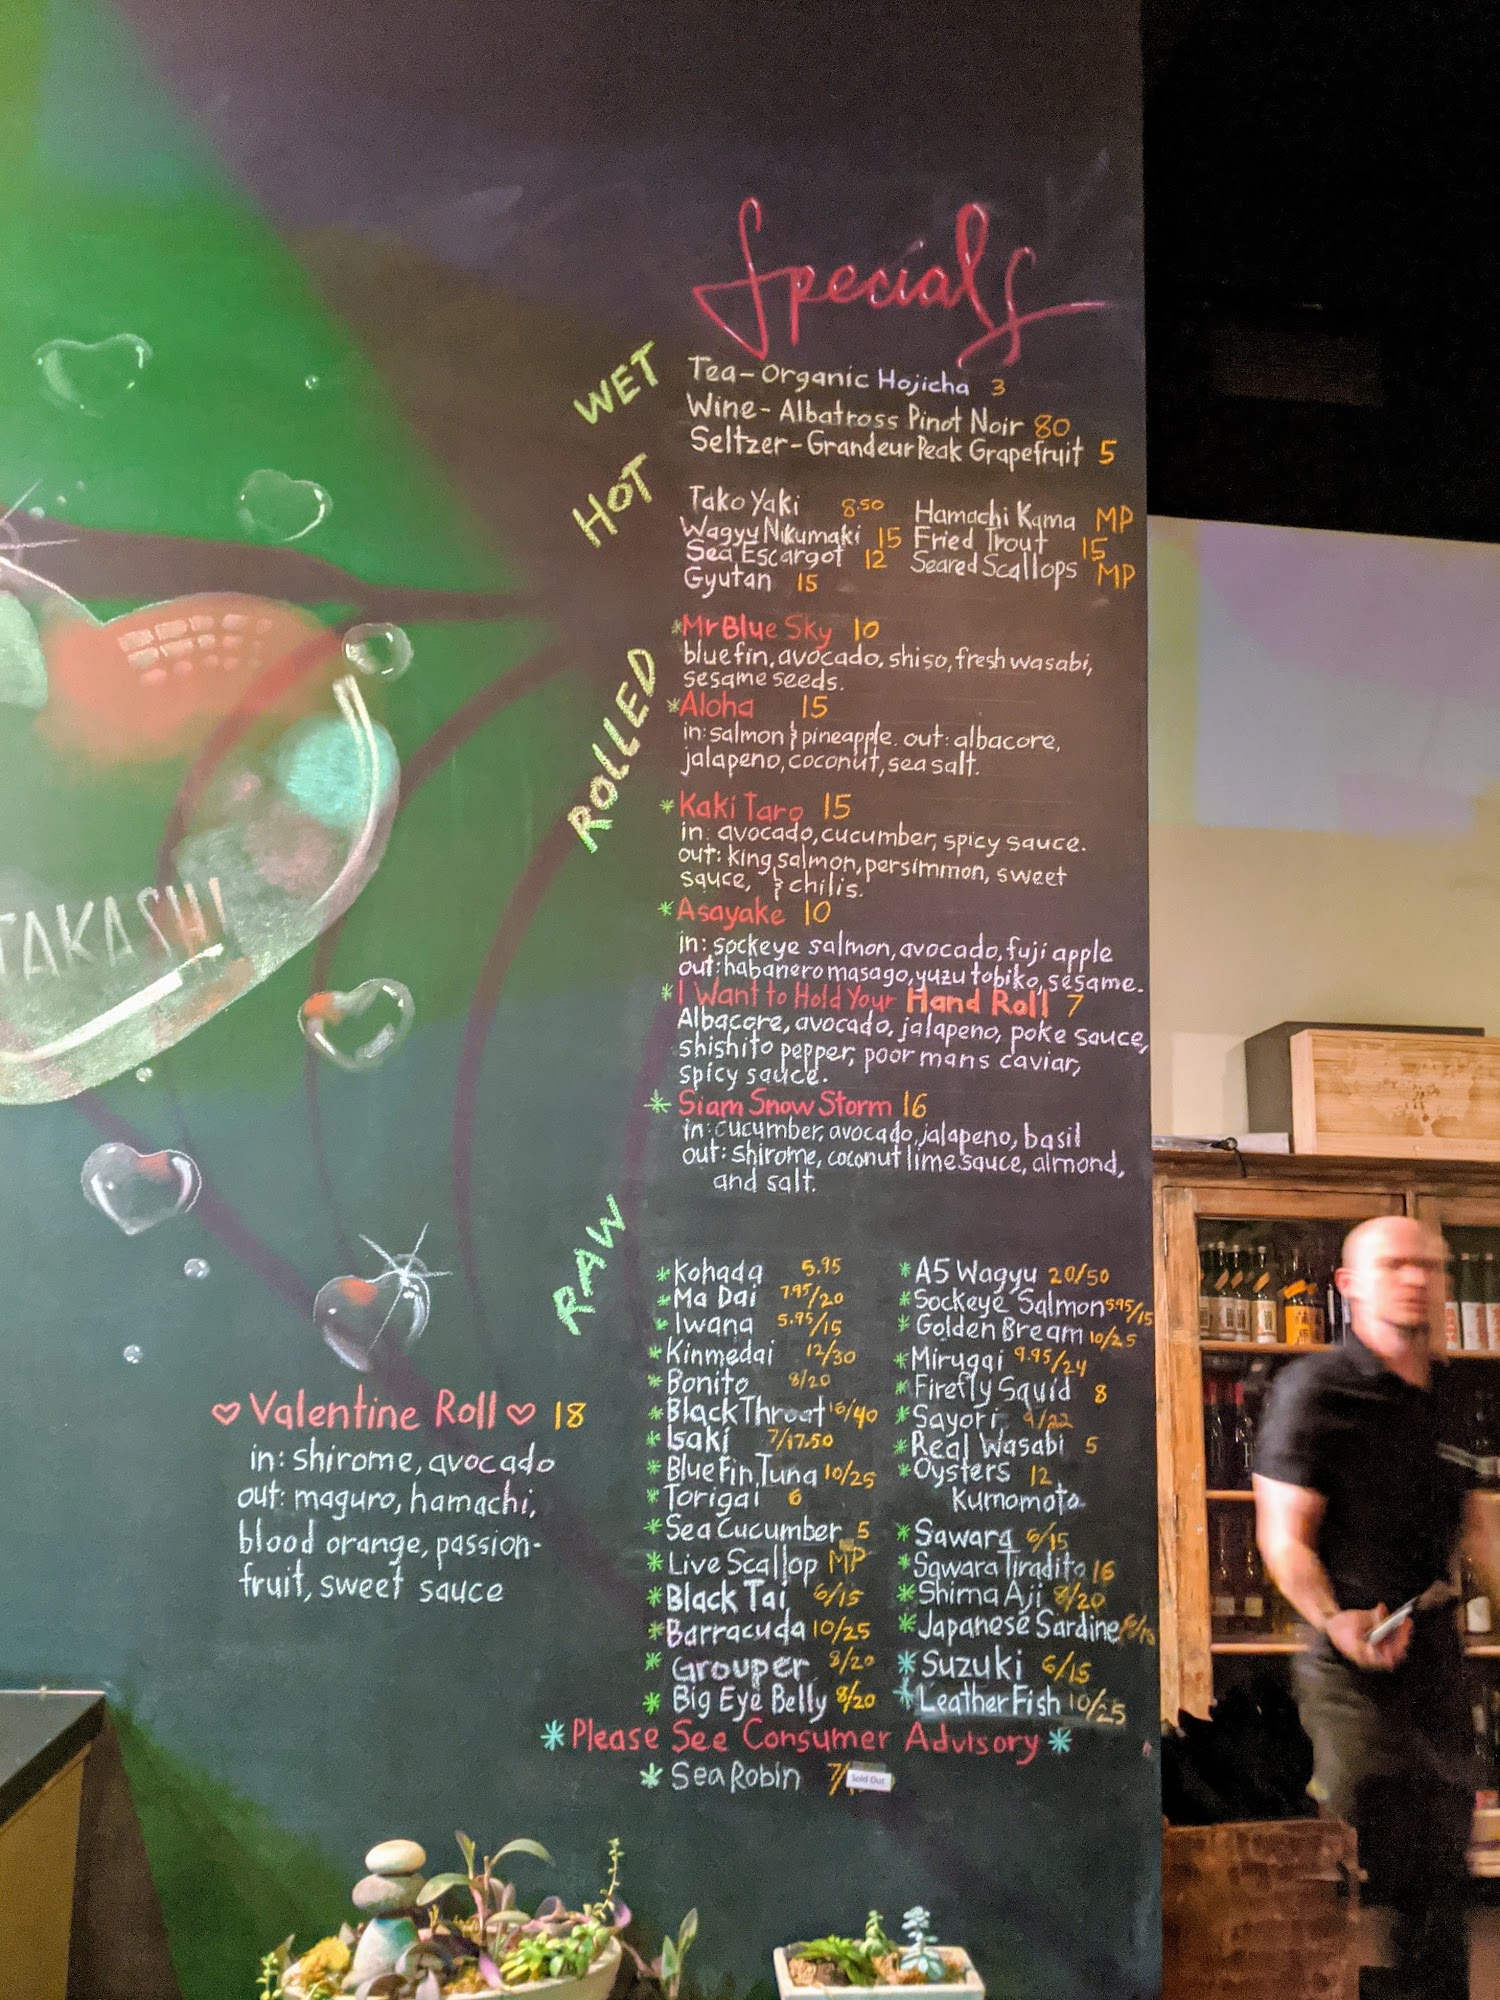 Specials
WET
Tea-Organic Hojicha 3
Wine-Albatross Pinot Noir 80
Seltzer-Grandeur Peak Grapefruit 5
HOT
Tako Yaki 8.50
Wagyu Nikumaki 15
Sea Escargot 12
Gyutan 15
Hamachi Kama MP
Fried Trout 15
Seared Scallops MP
ROLLED
*Mr Blue Sky 10
bluefin, avocado, shiso, fresh wasabi,
sesame seeds.
*Aloha 15
in: salmon & pineapple. out: albacore,
jalapeno, coconut, sea salt.
*Kaki Taro 15
in: avocado, cucumber, spicy sauce.
out: king salmon, persimmon, sweet
sauce, & chilis.
*Asayake 10
in: sockeye salmon, avocado, fuji apple
out: habanero masago, yuzu tobiko, sesame.
*I Want to Hold Your Hand Roll 7
Albacore, avocado, jalapeno, poke sauce,
shishito pepper, poor mans caviar,
spicy sauce.
*Siam Snow Storm 16
in: cucumber, avocado, jalapeno, basil
out: shirome, coconut lime sauce, almond,
and salt.
RAW
*Kohada 5.95
*Ma Dai 7.95/20
*Iwana 5.95/15
*Kinmedai 12/30
*Bonito 8/20
*Black Throat 16/40
*Isaki 7/17.50
*Blue Fin Tuna 10/25
*Torigai 6
*Sea Cucumber 5
*Live Scallop MP
*Black Tai 6/15
*Barracuda 10/25
*Grouper 8/20
*Big Eye Belly 8/20
*A5 Wagyu 20/50
*Sockeye Salmon 5.95/15
*Golden Bream 10/25
*Mirugai 9.95/24
*Firefly Squid 8
*Sayori 9/22
*Real Wasabi 5
*Oysters 12
Kumomoto
*Sawara 6/15
*Sawara Tiradito 16
*Shima Aji 8/20
*Japanese Sardine
*Suzuki 6/15
*Leather Fish 10/25
*Please See Consumer Advisory*
*Sea Robin 7/
Sold Out
♡Valentine Roll♡ 18
in: shirome, avocado
out: maguro, hamachi,
blood orange, passion-
fruit, sweet sauce
TAKASHI